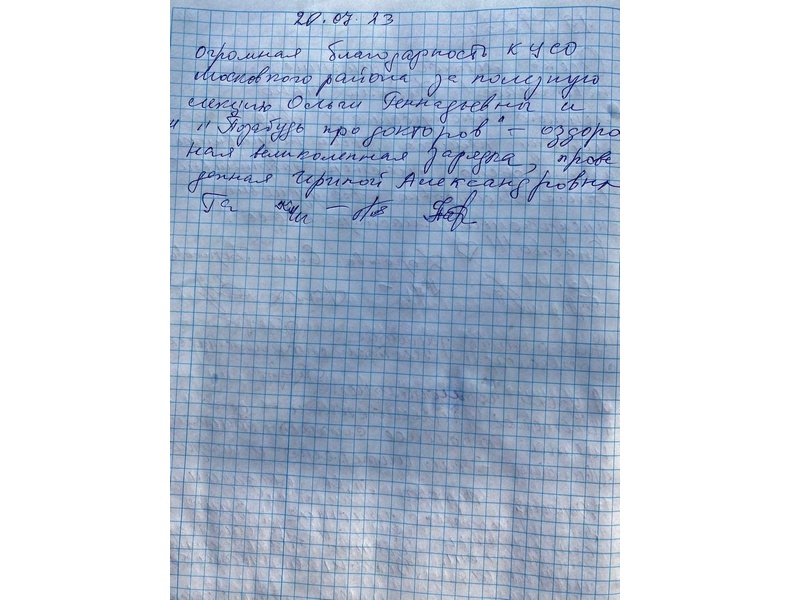 20.07.23
огромная благодарность КЦСО
Московского района за полезную
лекцию Ольги Геннадьевны и
" "Позабудь про докторов" – оздоро
ная великолепная зарядка, прове
дённая Ириной Александровны